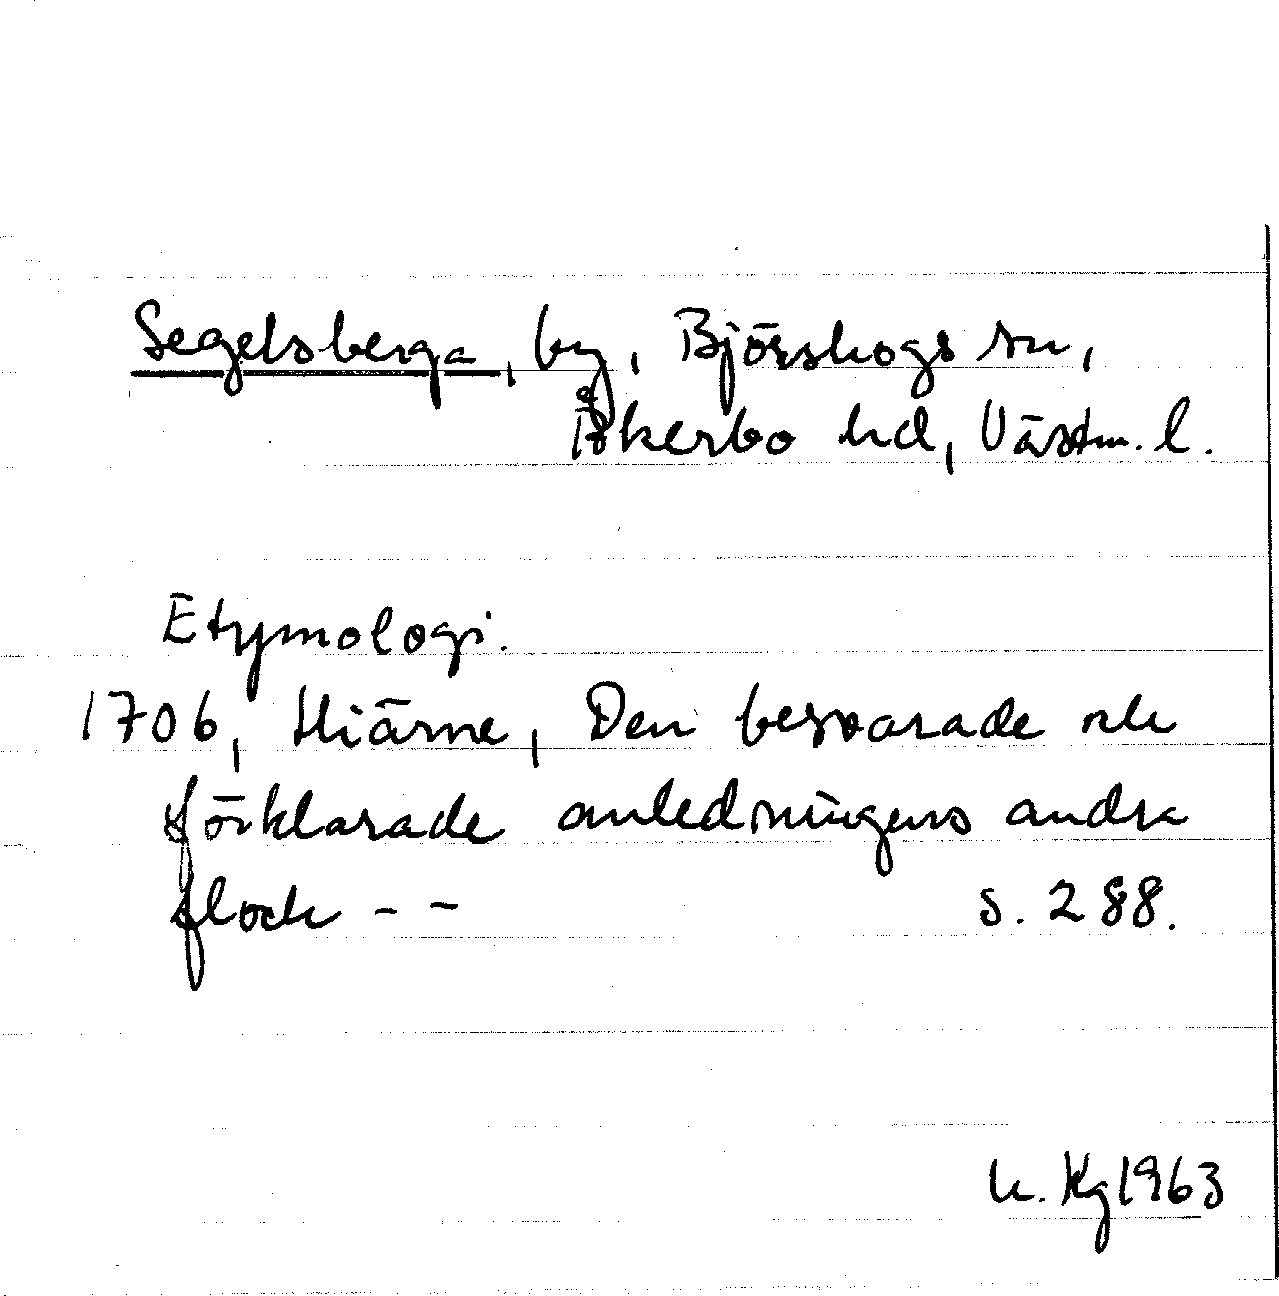 Segelsberga, by, Björskogs sn,
Åkerbo hd, Västm. l.
Etymologi.
1706, Hiärne, Den besvarade och
förklarade anledningens andra
flock - - s. 288.
K. Kg 1963